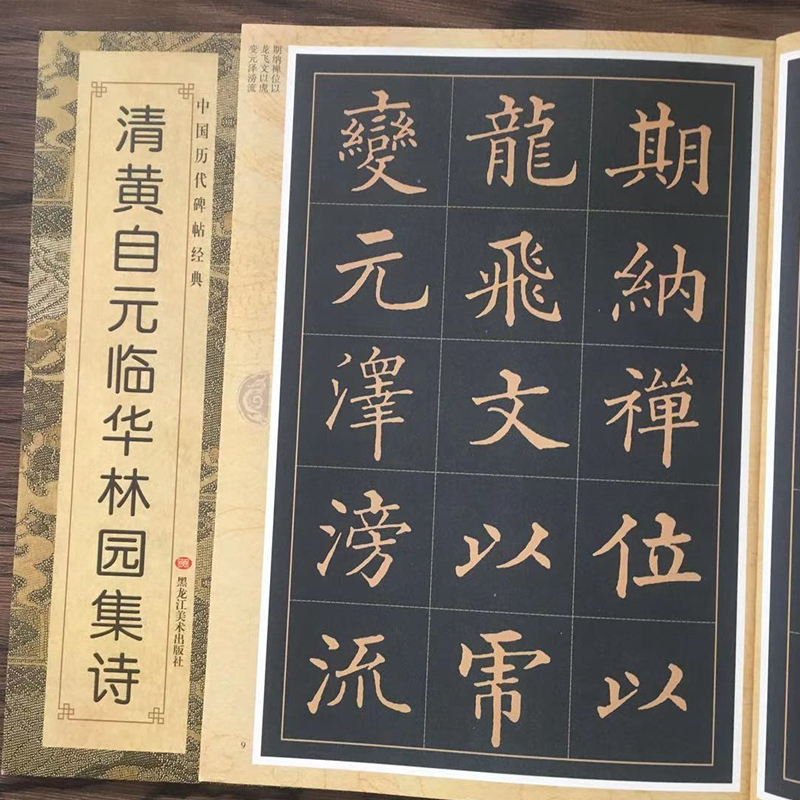 中国历代碑帖经典
清黄自元临华林园集诗
黑龙江美术出版社
期纳禅位以
龙飞文以虎
变元泽滂流
期納禪位以
龍飛文以乕
變元澤滂流
9